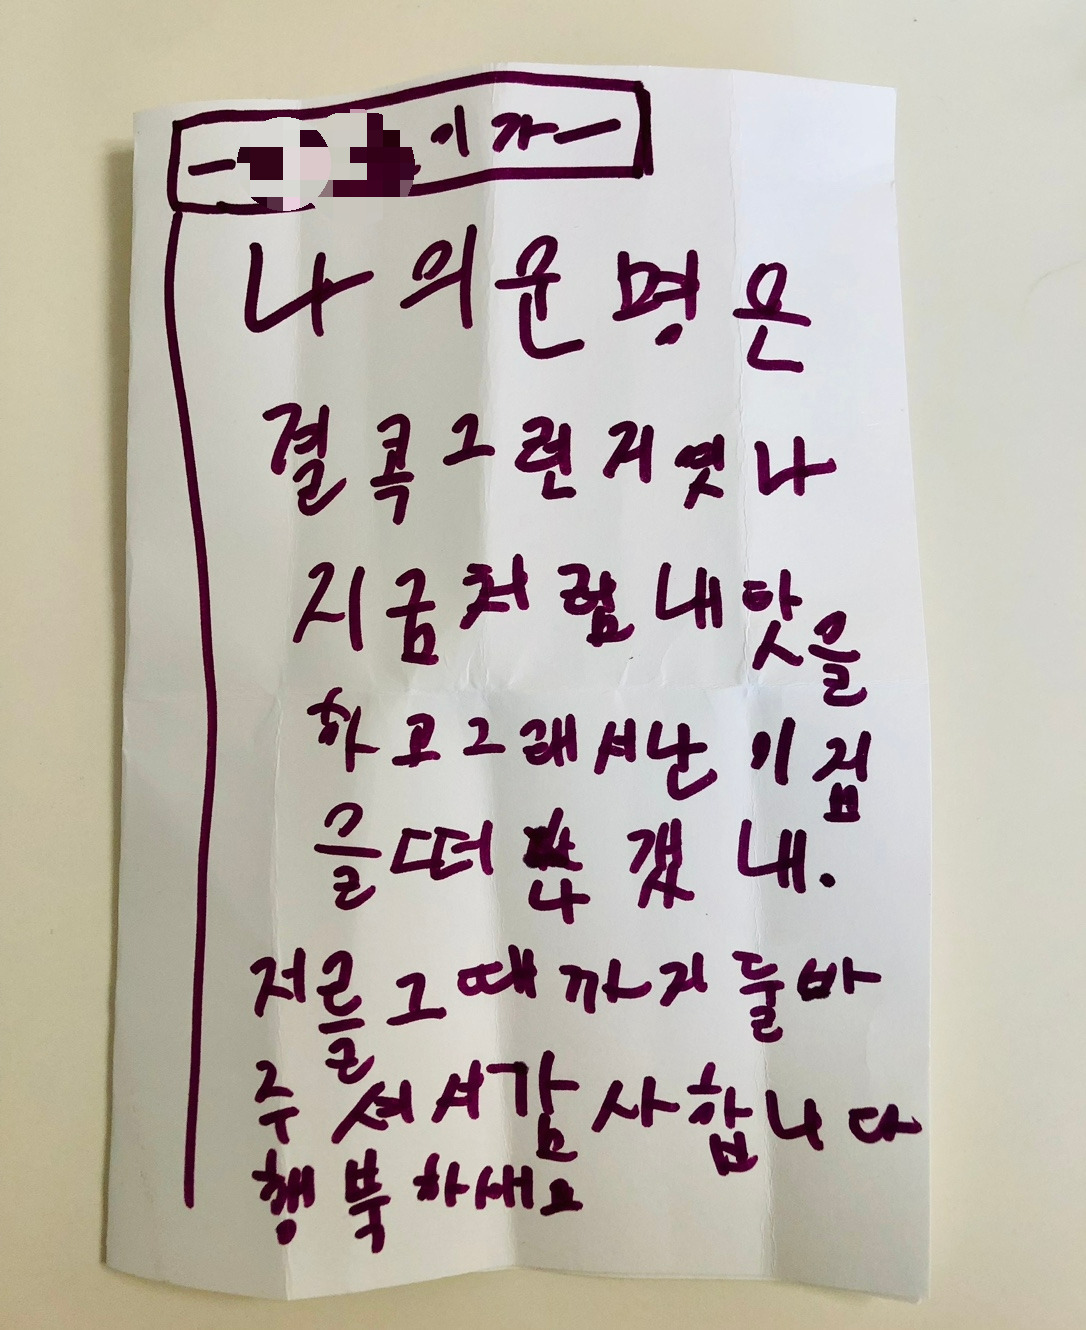 이가
나의운명은
결콕그런거엿나
지금처럼내탓을
하고그래서난이김
를떠나갰내.
저를그때까지돌바
주셔서감사합니다
행북하세요